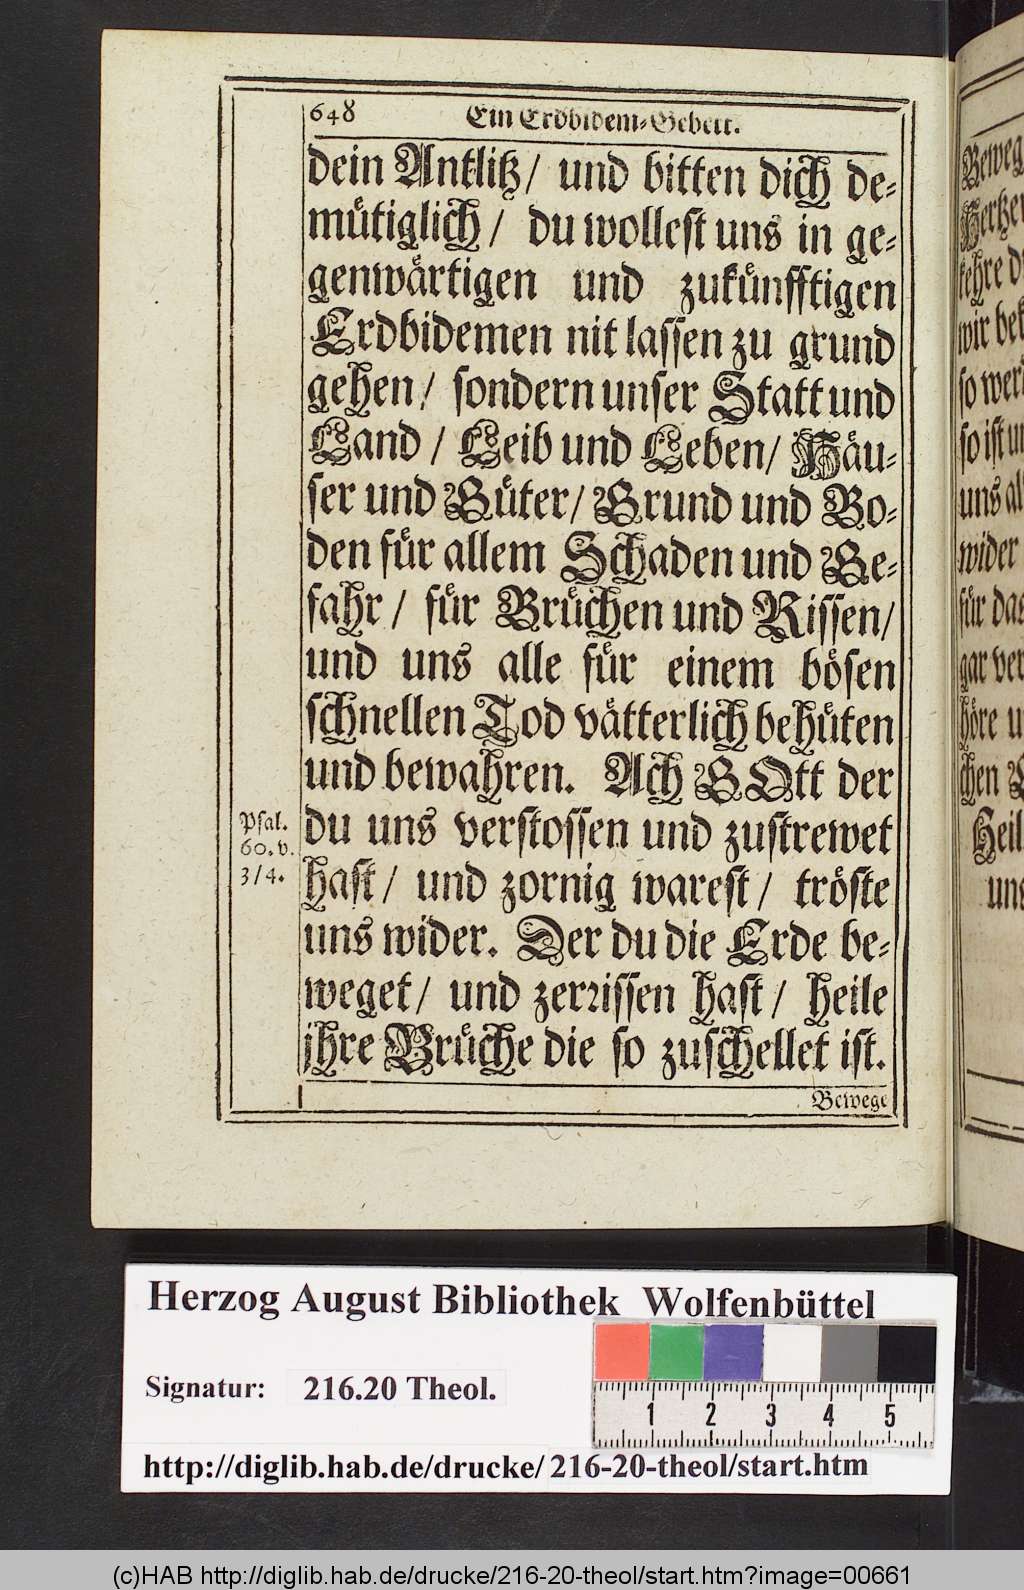 648 Ein Erdbidem-Gebett.
dein Antlitz/ und bitten dich de-
mütiglich/ du wollest uns in ge-
genwärtigen und zukünfftigen
Erdbidemen nit lassen zu grund
gehen/ sondern unser Statt und
Land/ Leib und Leben/ Häu-
ser und Güter/ Grund und Bo-
den für allem Schaden und Ge-
fahr/ für Brüchen und Rissen/
und uns alle für einem bösen
schnellen Tod vätterlich behüten
und bewahren. Ach GOtt der
du uns verstossen und zustrewet
hast/ und zornig warest/ tröste
uns wider. Der du die Erde be-
weget/ und zerrissen hast/ heile
jhre Brüche die so zuschellet ist.
Bewege
Psal.
60. v.
3/4.
Beweg
Hertzen
kehre d
wir bek
so wer
so ist un
uns al
wider
für das
gar ver
höre u
chen
Heil
uns
Herzog August Bibliothek Wolfenbüttel
Signatur: 216.20 Theol.
1 2 3 4 5
http://diglib.hab.de/drucke/216-20-theol/start.htm
(c)HAB http://diglib.hab.de/drucke/216-20-theol/start.htm?image=00661